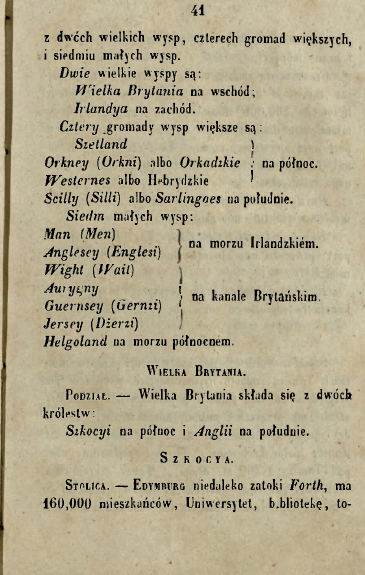 41
z dwóch wielkich wysp, czterech gromad większych,
i siedmiu małych wysp.
Dwie wielkie wyspy są:
Wielka Brytania na wschód;
Irlandya na zachód.
Cztery gromady wysp większe są:
Szetland
Orkney (Orkni) albo Orkadzkie } na północ.
Westernes albo Hebrydzkie
Scilly (Silli) albo Sarlingoes na południe.
Siedm małych wysp:
Man (Men)
Anglesey (Englesi) } na morzu Irlandzkiém.
Wight (Wait)
Aurygny
Guernsey (Gernzi) } na kanale Brytańskim.
Jersey (Dżerzi)
Helgoland na morzu północnem.
Wielka Brytania.
Podział. — Wielka Brytania składa się z dwóch
królestw:
Szkocyi na północ i Anglii na południe.
Szkocya.
Stolica. — Edymburg niedaleko zatoki Forth, ma
160,000 mieszkańców, Uniwersytet, b.bliotekę, to-